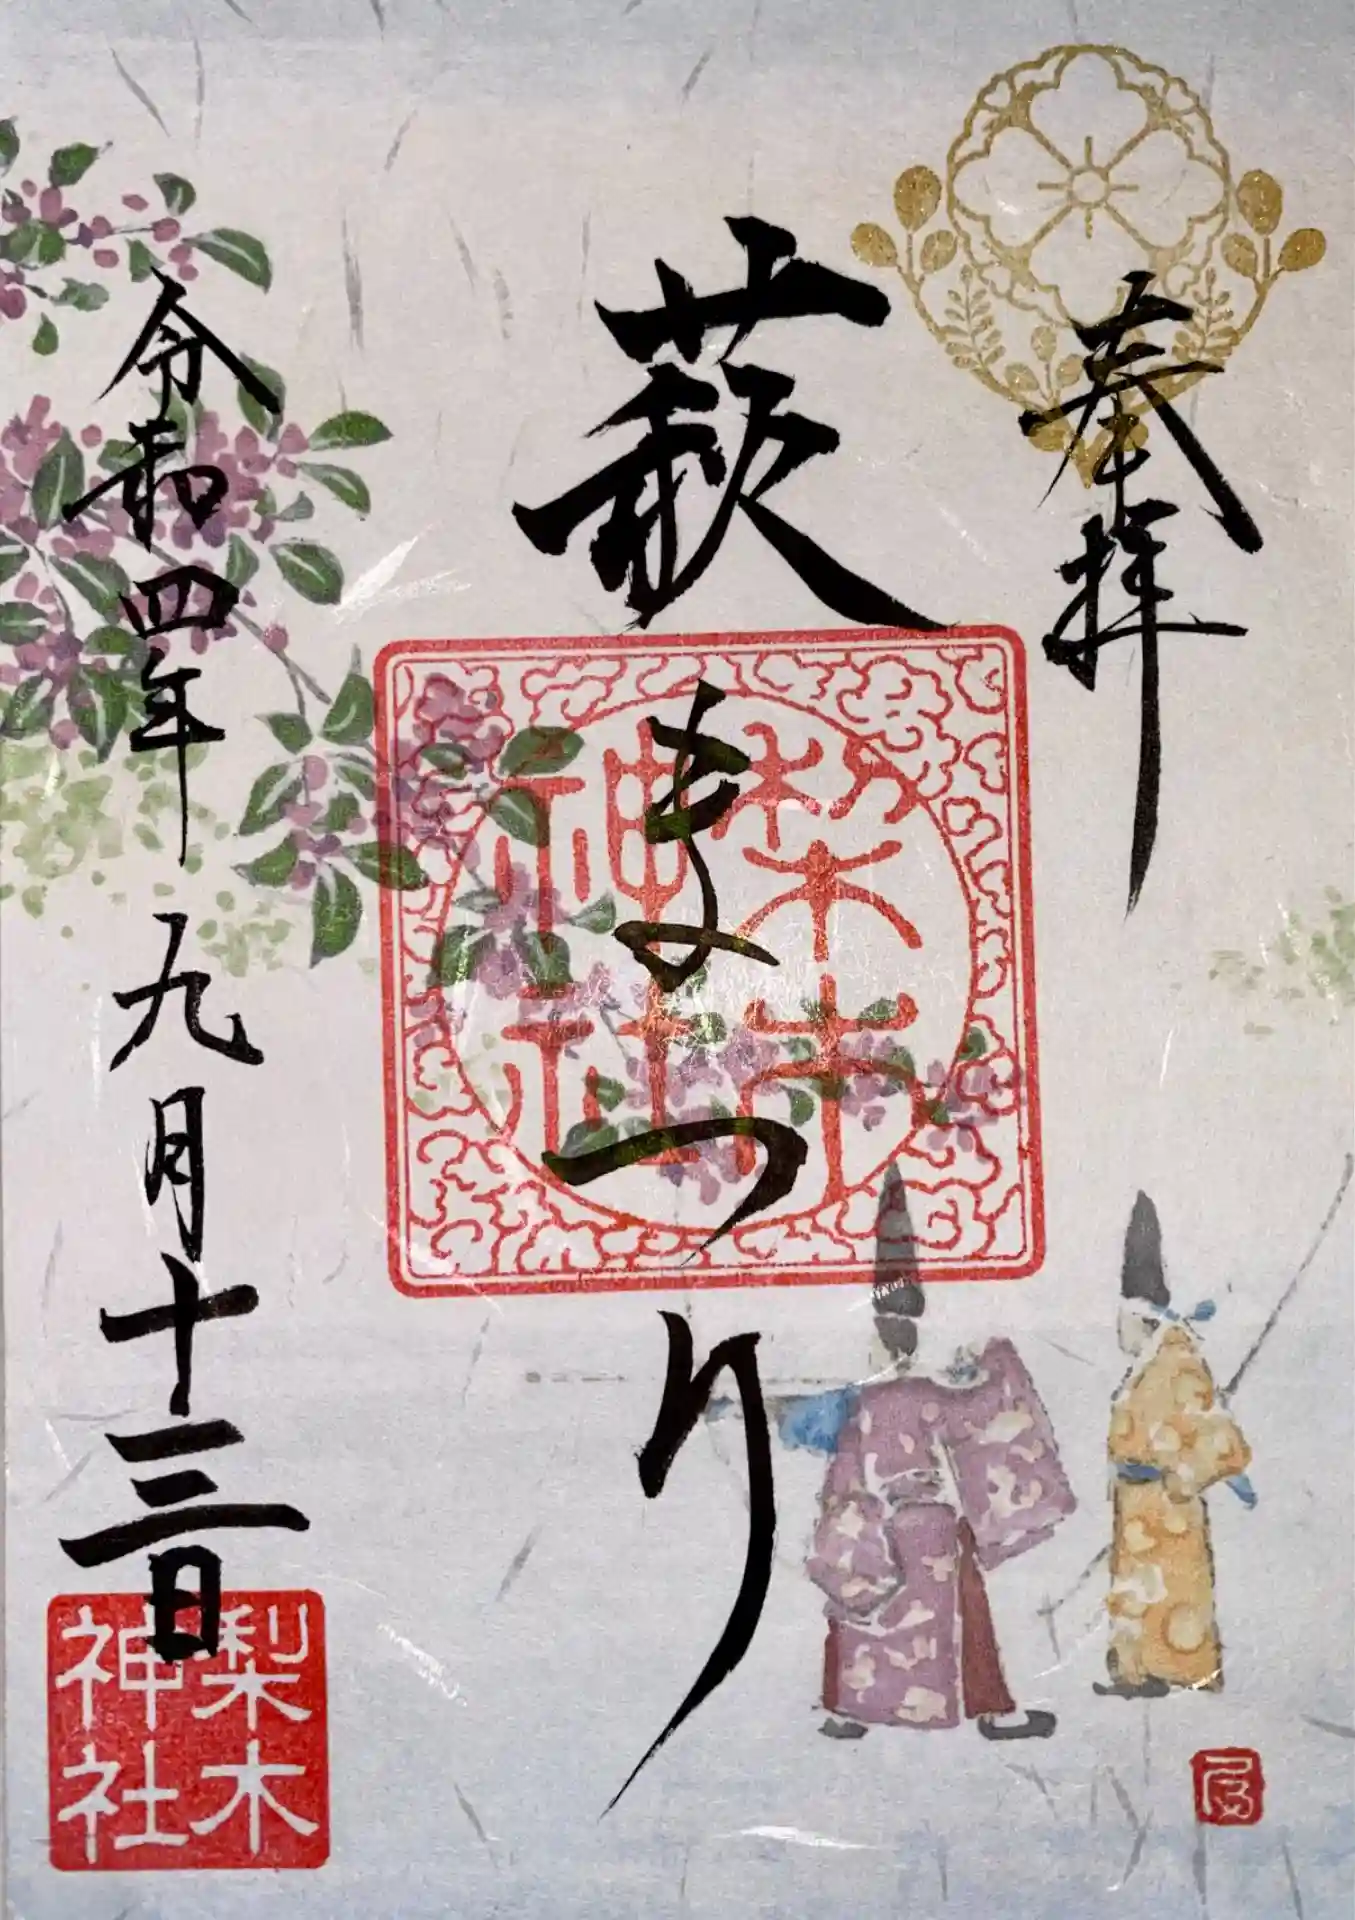 奉拝
萩まつり
梨木神社
令和四年九月十三日
梨木神社